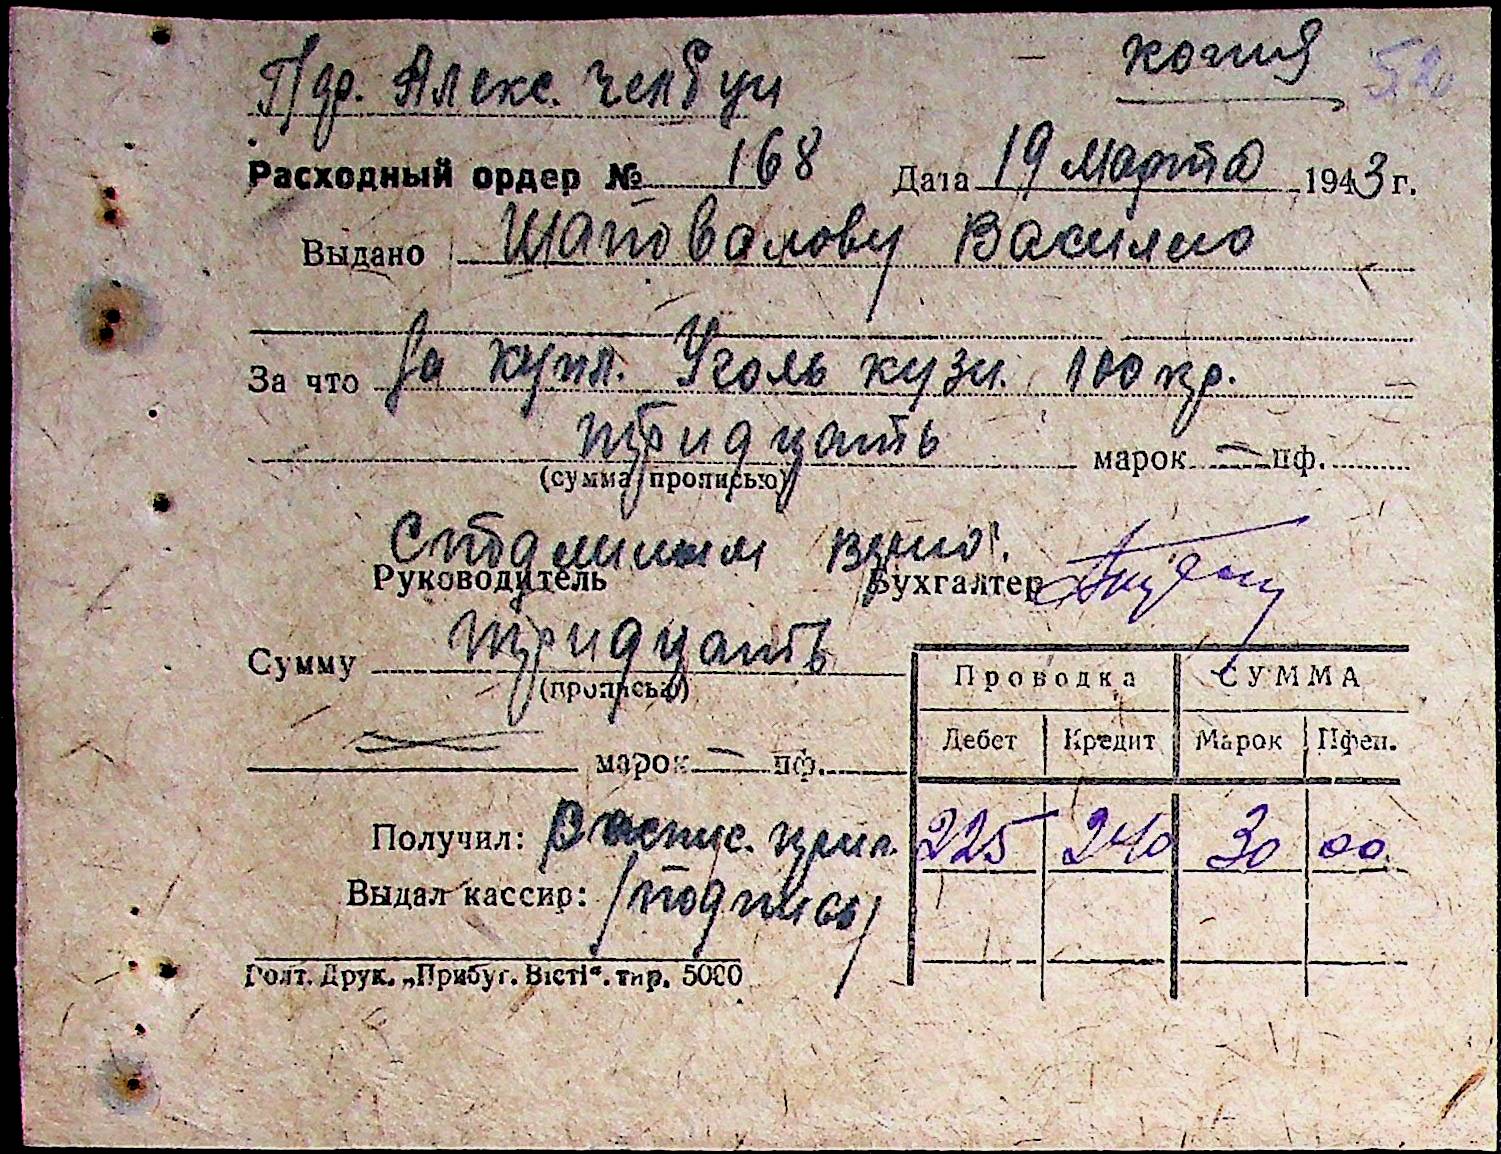 копия 520
Пдр. Алекс.
Расходный ордер № 168 Дата 19 Марта 1943 г.
Выдано Шаповалову Василию
За что За купл. Уголь кузн. 100 кгр.
тридцать марок — пф.
(сумма прописью)
Руководитель Бухгалтер
Сумму тридцать
(прописью)
марок — пф.
Проводка СУММА
Дебет Кредит Марок Пфен.
225 240 30 00
Получил:
Выдал кассир: /подпись/
Голт. Друк. „Прибуг. Вісті“. тир. 5000